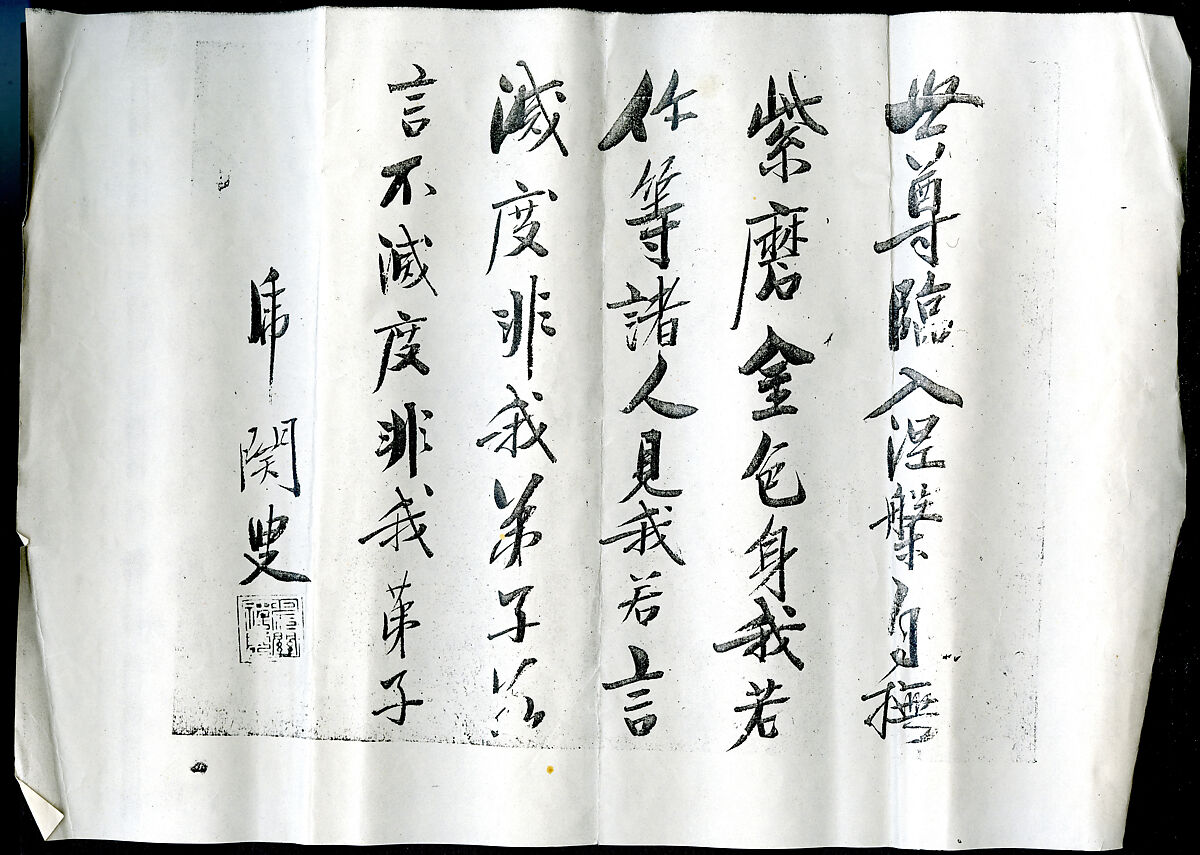 世尊臨入涅槃自撫
紫磨金色身我若
你等諸人見我若言
滅度非我弟子若
言不滅度非我弟子
虎関叟